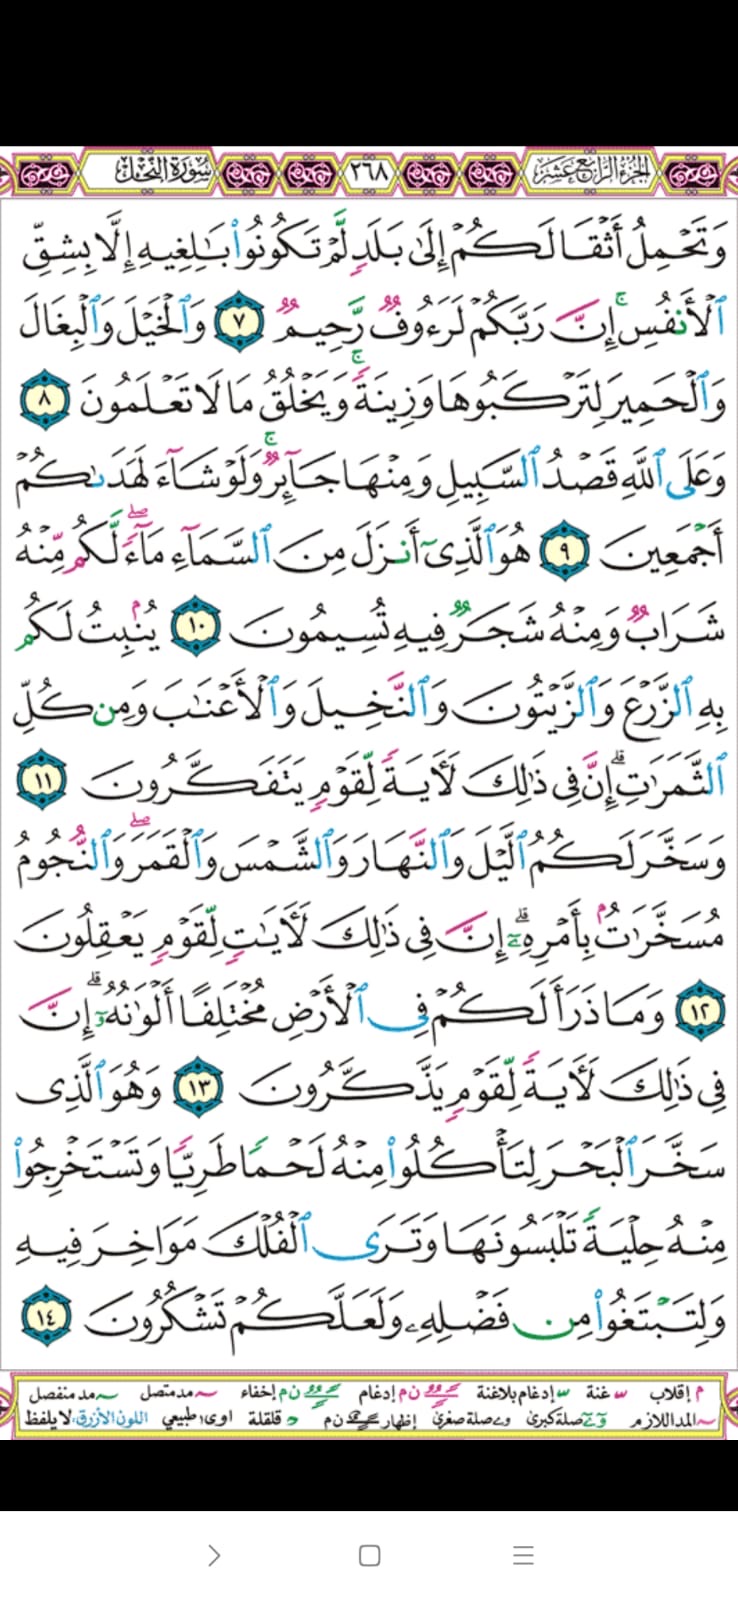 الجزء الرابع عشر ٢٦٨ سورة النحل
وَتَحْمِلُ أَثْقَالَكُمْ إِلَىٰ بَلَدٍ لَّمْ تَكُونُوا۟ بَـٰلِغِيهِ إِلَّا بِشِقِّ
ٱلْأَنفُسِ ۚ إِنَّ رَبَّكُمْ لَرَءُوفٌ رَّحِيمٌ ٧ وَٱلْخَيْلَ وَٱلْبِغَالَ
وَٱلْحَمِيرَ لِتَرْكَبُوهَا وَزِينَةً ۚ وَيَخْلُقُ مَا لَا تَعْلَمُونَ ٨
وَعَلَى ٱللَّهِ قَصْدُ ٱلسَّبِيلِ وَمِنْهَا جَآئِرٌ ۚ وَلَوْ شَآءَ لَهَدَىٰكُمْ
أَجْمَعِينَ ٩ هُوَ ٱلَّذِىٓ أَنزَلَ مِنَ ٱلسَّمَآءِ مَآءً ۖ لَّكُم مِّنْهُ
شَرَابٌ وَمِنْهُ شَجَرٌ فِيهِ تُسِيمُونَ ١٠ يُنۢبِتُ لَكُم
بِهِ ٱلزَّرْعَ وَٱلزَّيْتُونَ وَٱلنَّخِيلَ وَٱلْأَعْنَـٰبَ وَمِن كُلِّ
ٱلثَّمَرَٰتِ ۗ إِنَّ فِى ذَٰلِكَ لَـَٔايَةً لِّقَوْمٍ يَتَفَكَّرُونَ ١١
وَسَخَّرَ لَكُمُ ٱلَّيْلَ وَٱلنَّهَارَ وَٱلشَّمْسَ وَٱلْقَمَرَ ۖ وَٱلنُّجُومُ
مُسَخَّرَٰتٌۢ بِأَمْرِهِۦٓ ۗ إِنَّ فِى ذَٰلِكَ لَـَٔايَـٰتٍ لِّقَوْمٍ يَعْقِلُونَ
١٢ وَمَا ذَرَأَ لَكُمْ فِى ٱلْأَرْضِ مُخْتَلِفًا أَلْوَٰنُهُۥٓ ۗ إِنَّ
فِى ذَٰلِكَ لَـَٔايَةً لِّقَوْمٍ يَذَّكَّرُونَ ١٣ وَهُوَ ٱلَّذِى
سَخَّرَ ٱلْبَحْرَ لِتَأْكُلُوا۟ مِنْهُ لَحْمًا طَرِيًّا وَتَسْتَخْرِجُوا۟
مِنْهُ حِلْيَةً تَلْبَسُونَهَا وَتَرَى ٱلْفُلْكَ مَوَاخِرَ فِيهِ
وَلِتَبْتَغُوا۟ مِن فَضْلِهِۦ وَلَعَلَّكُمْ تَشْكُرُونَ ١٤
م إقلاب غنة إدغام بلاغنة ن م إدغام ن م إخفاء مد متصل مد منفصل
المد اللازم صلة كبرى صلة صغرى إظهار ن م قلقلة اوى طبيعي اللون الأزرق لا يلفظ